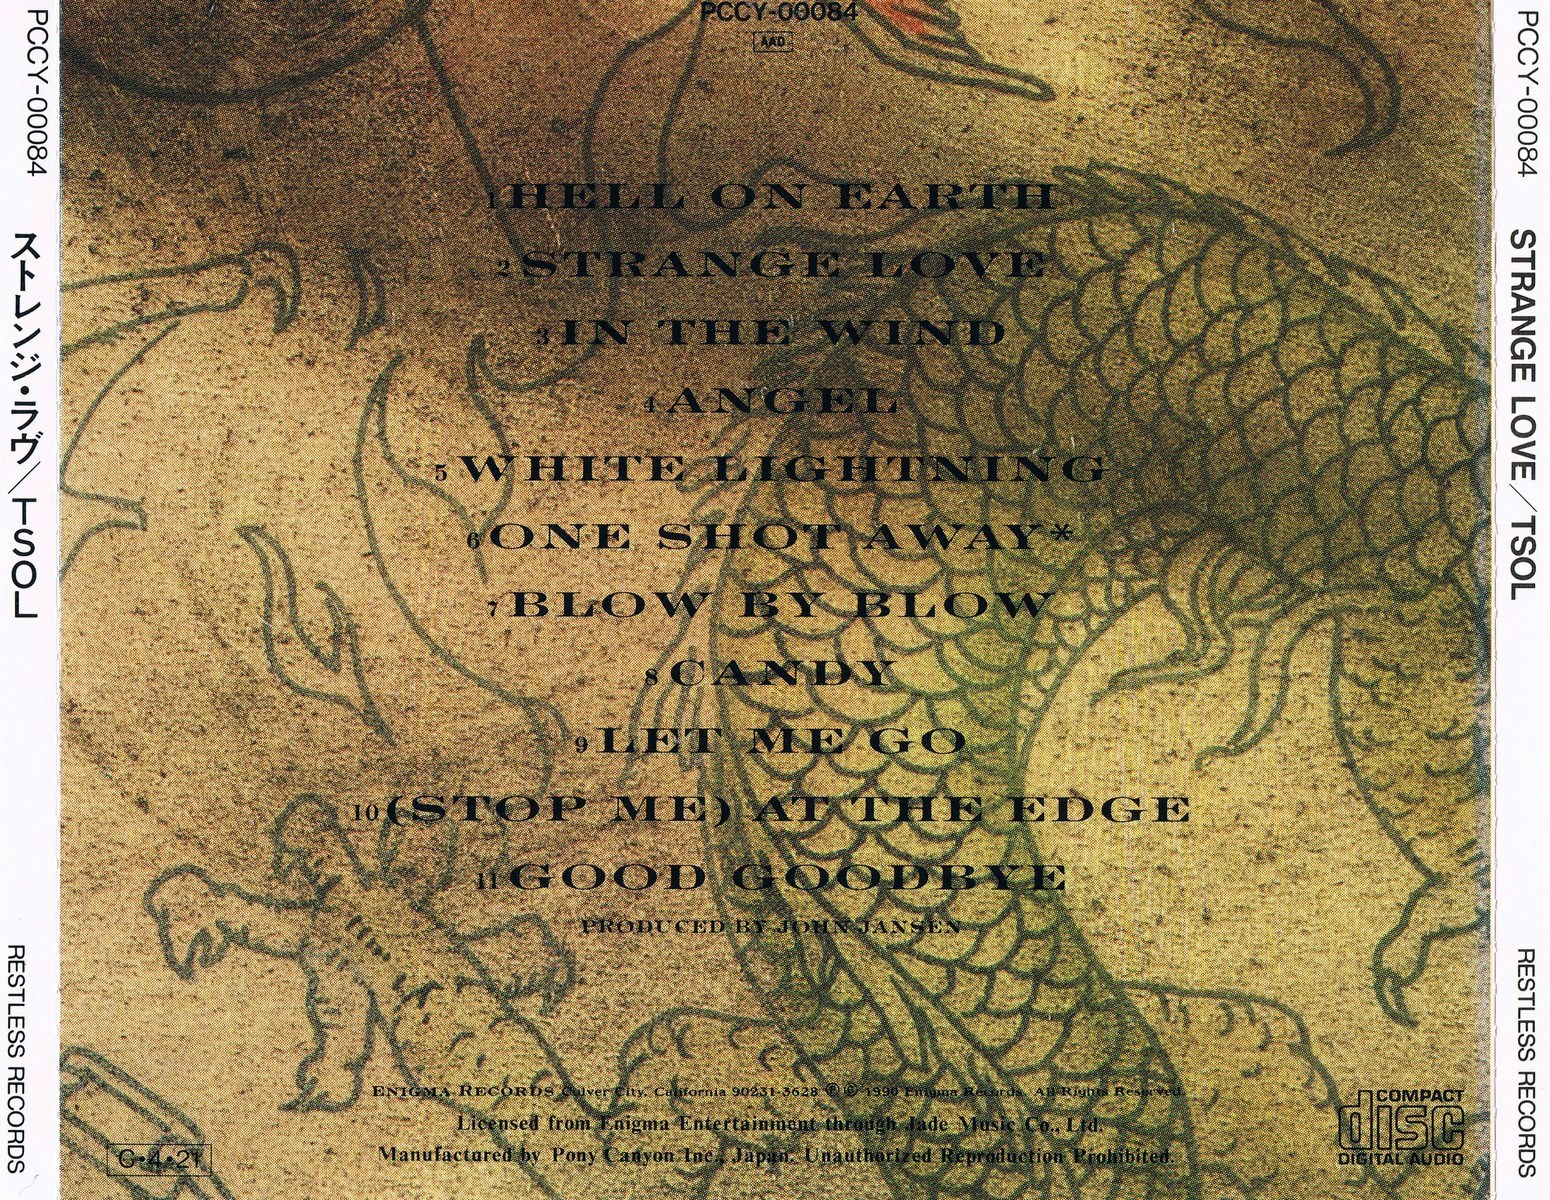 PCCY-00084
ストレンジ・ラヴ/TSOL
RESTLESS RECORDS
PCCY-00084
AAD
1 HELL ON EARTH
2 STRANGE LOVE
3 IN THE WIND
4 ANGEL
5 WHITE LIGHTNING
6 ONE SHOT AWAY*
7 BLOW BY BLOW
8 CANDY
9 LET ME GO
10 (STOP ME) AT THE EDGE
11 GOOD GOODBYE
PRODUCED BY JOHN JANSEN
ENIGMA RECORDS Culver City, California 90231-3628 ℗ © 1990 Enigma Records. All Rights Reserved.
Licensed from Enigma Entertainment through Jade Music Co., Ltd.
Manufactured by Pony Canyon Inc., Japan. Unauthorized Reproduction Prohibited.
C•4•21
COMPACT
disc
DIGITAL AUDIO
PCCY-00084
STRANGE LOVE/TSOL
RESTLESS RECORDS